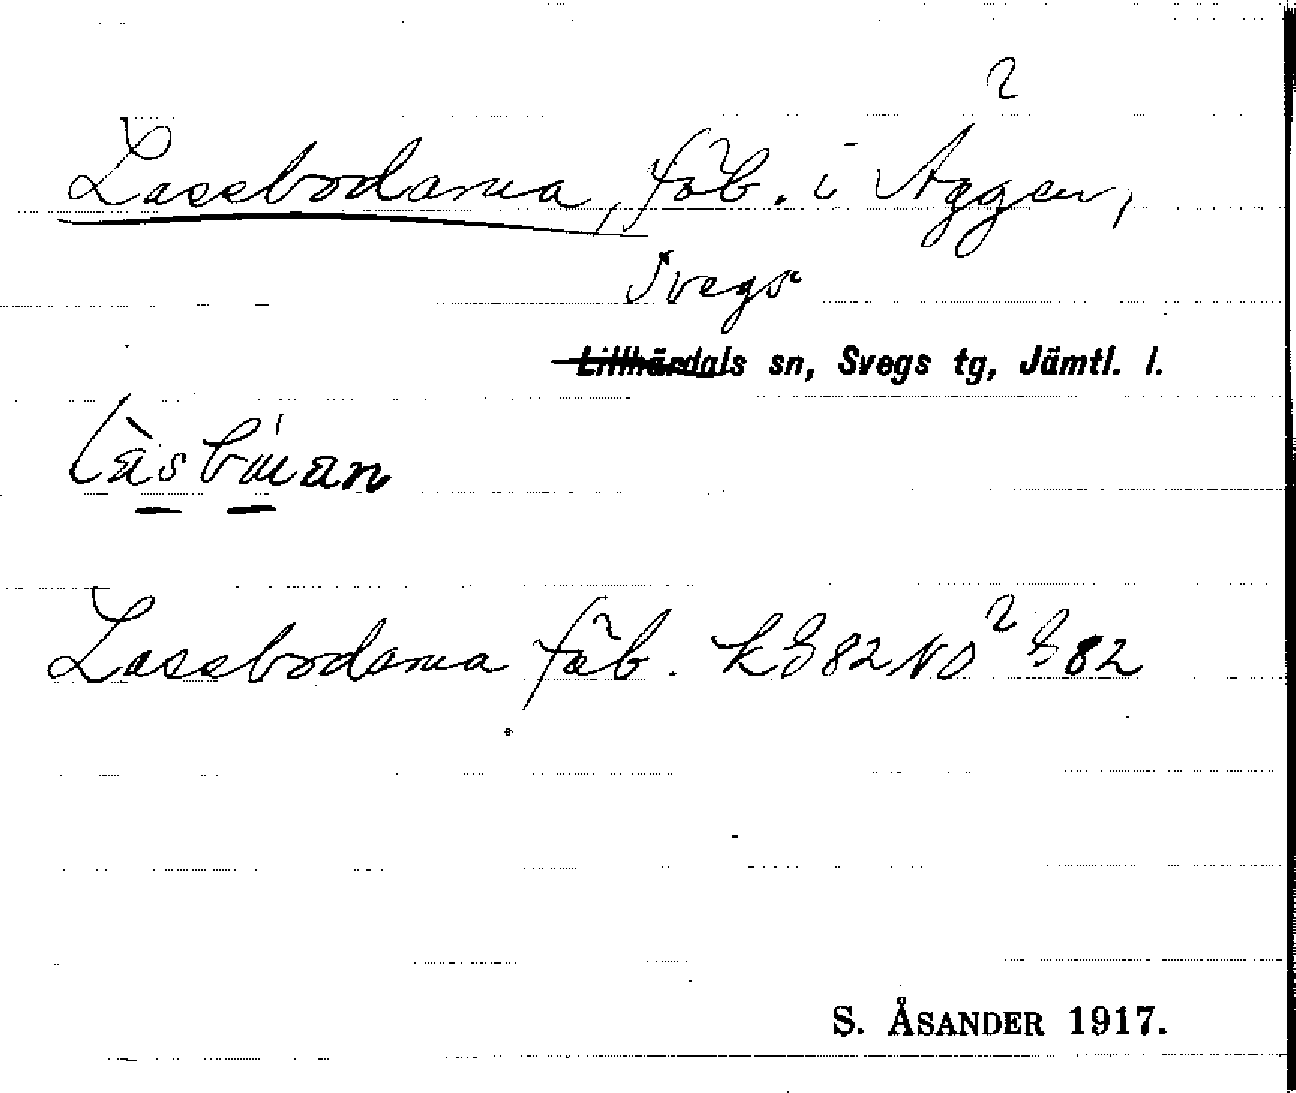 Lassbodarna, fäb. i Äggen,
Svegs
Lillhärdals sn, Svegs tg, Jämtl. l.
Lassbodarna fäb. K982NO 982
S. ÅSANDER 1917.